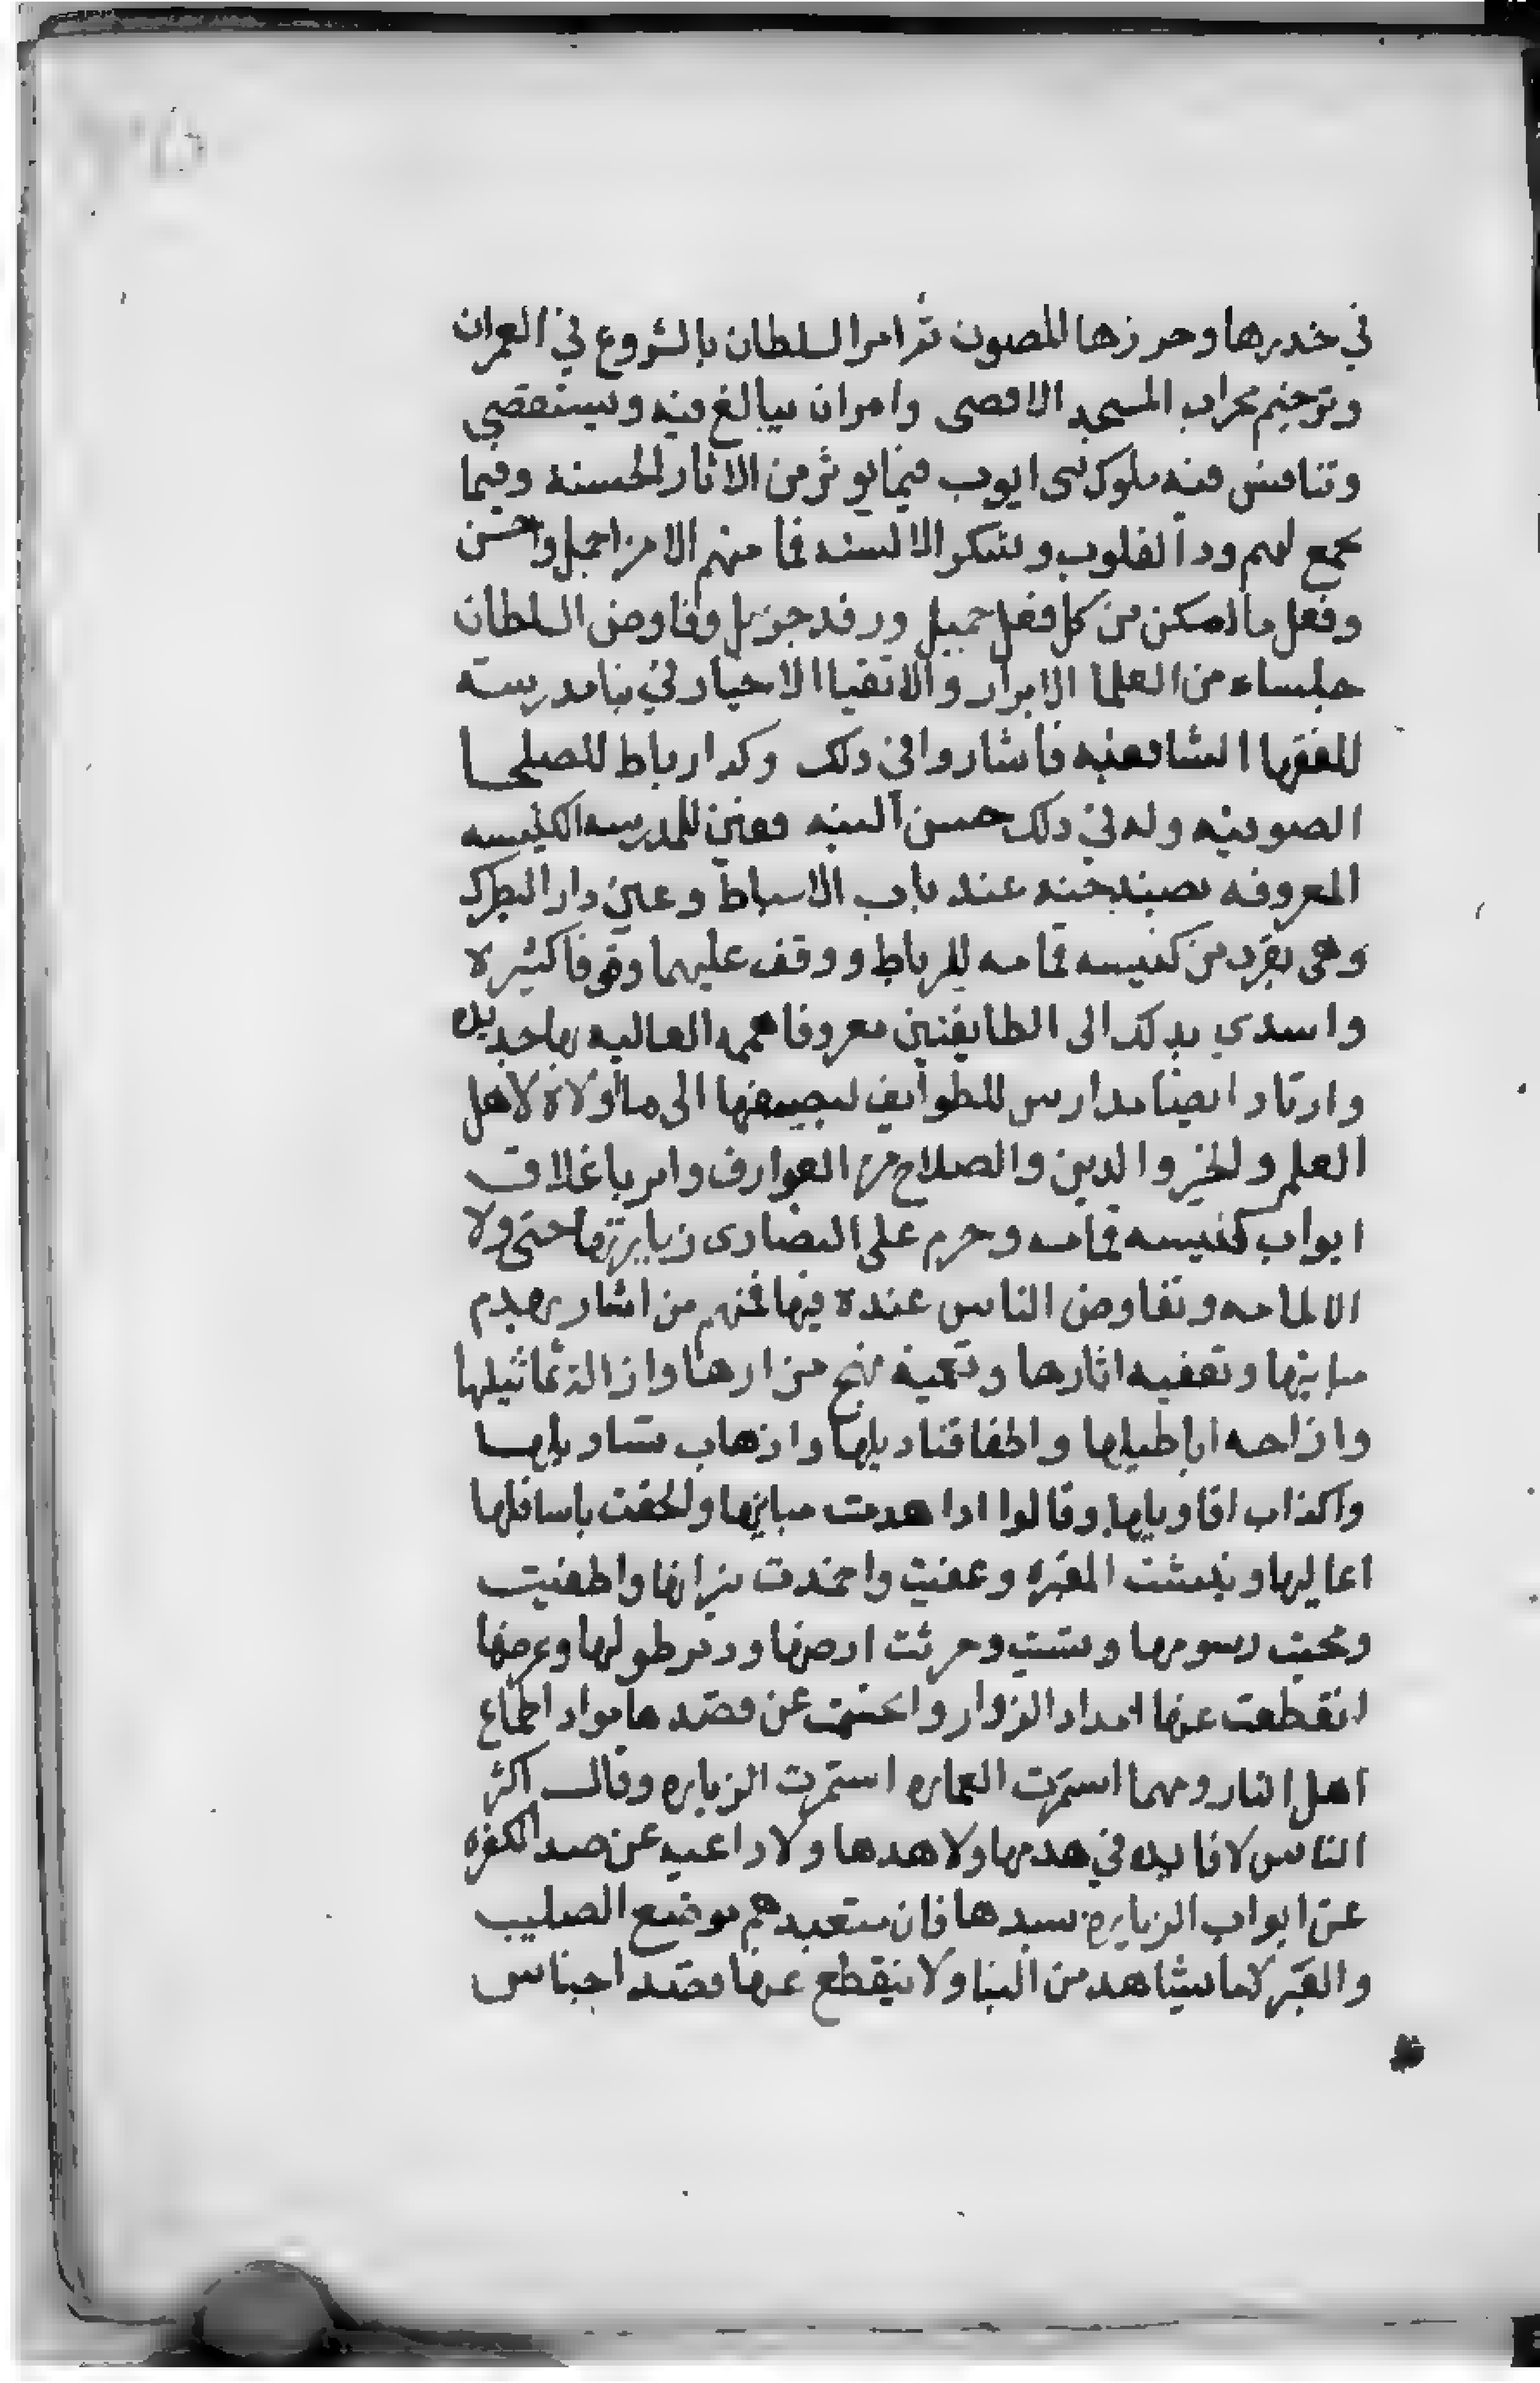 في خدرها وحرزها المصون ثم امر السلطان بالشروع في العمران
وترخيم محراب المسجد الاقصى وامر ان يبالغ فيه ويستقصى
وتنافس فيه ملوك بني ايوب فيما يوثر من الاثار الحسنة وفيما
يجمع لهم ود القلوب وشكر الالسنه فما منهم الا من اجمل واحسن
وفعل ما امكن من كل فعل جميل ورفد جزيل وفاوض السلطان
جلساءه من العلما الابرار والاتقيا الاخيار في بنا مدرسة
للفقها الشافعيه فاشاروا في ذلك وكذا رباط للصلحا
الصوفيه وله في ذلك حسن النيه فعين للمدرسه الكنيسه
المعروفه بصيد حنه عند باب الاسباط وعين دار البطرك
وهي بقرب من كنيسه قمامه للرباط ووقف عليهما وقوفا كثيره
واسدي بذلك الى الطايفتين معروفا هممه العاليه بها جديره
وارتاد ايضا مدارس للطوايف ليضيفها الى ما اولاه لاهل
العلم والخير والدين والصلاح من العوارف وامر باغلاق
ابواب كنيسه قمامه وحرم على النصارى زيارتها حتى ولا
الالمامه وتفاوض الناس عنده فيها فمنهم من اشار بهدم
مبانيها وتعفيه اثارها وتعمية نهج مزارها وازالة تماثيلها
وازاحه اباطيلها واطفا قناديلها واذهاب تساويلها
واكذاب اقاويلها وقالوا اذا هدمت مبانيها والحقت باسافلها
اعاليها ونبشت المقبره وعفيت واخمدت نيرانها واطفيت
ومحيت رسومها ونسيت وحرثت ارضها ودمر طولها وعرضها
انقطعت عنها امداد الزوار وانحسمت عن قصدها مواد اطماع
اهل النار ومهما استمرت العماره استمرت الزياره وقال اكثر
الناس لا فايده في هدمها ولا هدها ولا داعيه عن صد الكفره
عن ابواب الزياره بسدها فان متعبدهم موضع الصليب
والقبر لا ما يشاهد من البنا ولا ينقطع عنها قصد اجناس